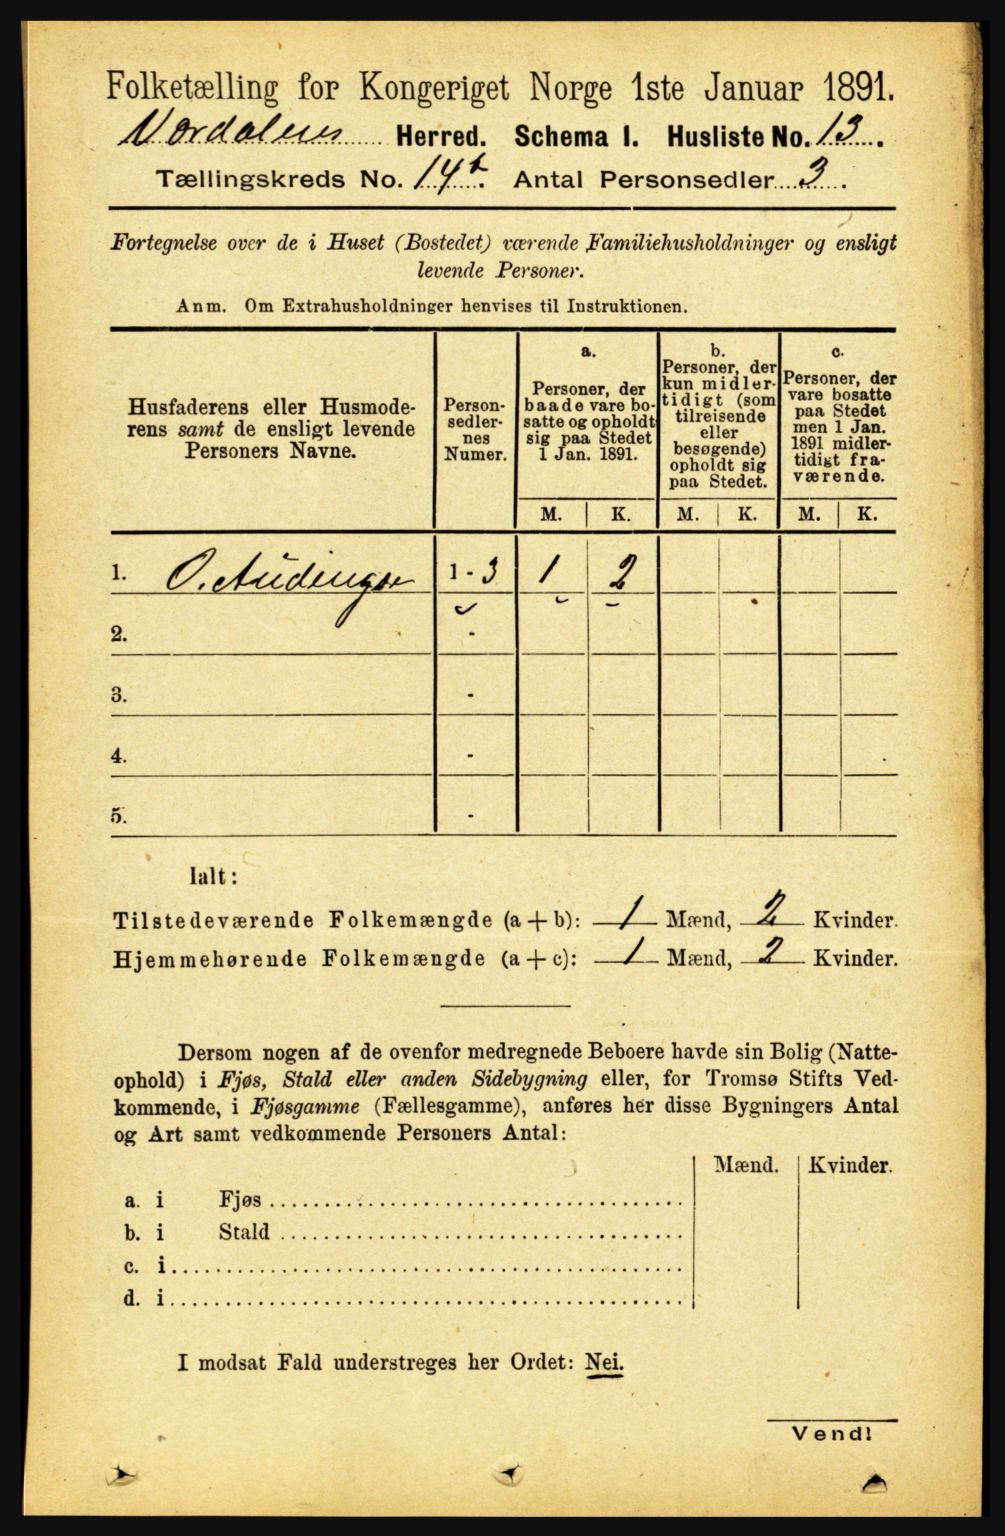 Folketælling for Kongeriget Norge 1ste Januar 1891.
Værdalens Herred. Schema I. Husliste No. 13.
Tællingskreds No. 14b. Antal Personsedler 3.
Fortegnelse over de i Huset (Bostedet) værende Familiehusholdninger og ensligt
levende Personer.
Anm. Om Extrahusholdninger henvises til Instruktionen.
Husfaderens eller Husmode-
rens samt de ensligt levende
Personers Navne.
Person-
sedler-
nes
Numer.
a.
Personer, der
baade vare bo-
satte og opholdt
sig paa Stedet
1 Jan. 1891.
b.
Personer, der
kun midler-
tidigt (som
tilreisende
eller
besøgende)
opholdt sig
paa Stedet.
c.
Personer, der
vare bosatte
paa Stedet
men 1 Jan.
1891 midler-
tidigt fra-
værende.
M. K. M. K. M. K.
1. O. 1 - 3 1 2
2. -
3. -
4. -
5. -
Ialt:
Tilstedeværende Folkemængde (a + b): 1 Mænd, 2 Kvinder.
Hjemmehørende Folkemængde (a + c): 1 Mænd, 2 Kvinder.
Dersom nogen af de ovenfor medregnede Beboere havde sin Bolig (Natte-
ophold) i Fjøs, Stald eller anden Sidebygning eller, for Tromsø Stifts Ved-
kommende, i Fjøsgamme (Fællesgamme), anføres her disse Bygningers Antal
og Art samt vedkommende Personers Antal:
Mænd. Kvinder.
a. i Fjøs
b. i Stald
c. i
d. i
I modsat Fald understreges her Ordet: Nei.
Vend!